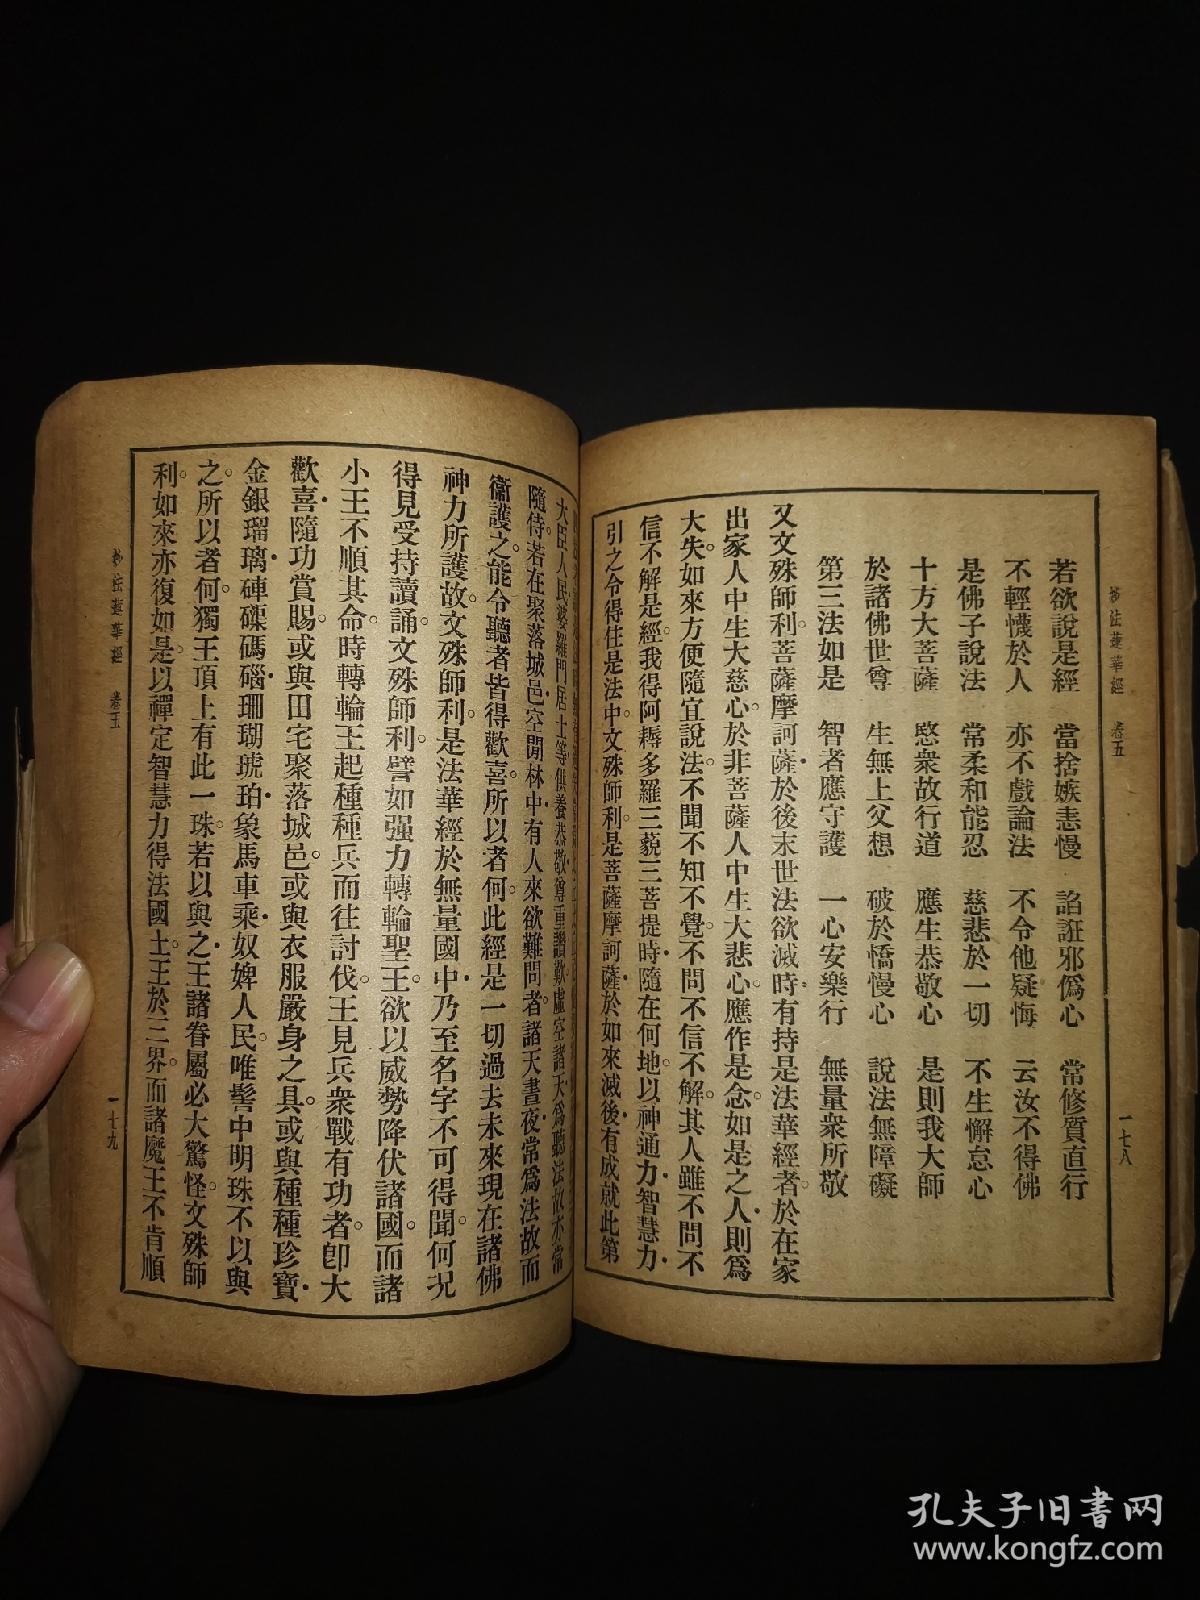 妙法蓮華經 卷五 一七八
若欲說是經 當捨嫉恚慢 諂誑邪僞心 常修質直行
不輕懱於人 亦不戲論法 不令他疑悔 云汝不得佛
是佛子說法 常柔和能忍 慈悲於一切 不生懈怠心
十方大菩薩 愍衆故行道 應生恭敬心 是則我大師
於諸佛世尊 生無上父想 破於憍慢心 說法無障礙
第三法如是 智者應守護 一心安樂行 無量衆所敬
又文殊師利。菩薩摩訶薩・於後末世法欲滅時・有持是法華經者・於在家
出家人中生大慈心。於非菩薩人中生大悲心。應作是念。如是之人・則爲
大失。如來方便隨宜說法。不聞不知不覺。不問不信不解。其人雖不問不
信不解是經。我得阿耨多羅三藐三菩提時・隨在何地。以神通力・智慧力・
引之令得住是法中。文殊師利。是菩薩摩訶薩・於如來滅後・有成就此第
大臣人民婆羅門居士等供養恭敬尊重讚歎虛空諸天・爲聽法故・亦常
隨侍。若在聚落城邑・空閒林中・有人來欲難問者。諸天晝夜・常爲法故・而
衞護之。能令聽者皆得歡喜。所以者何。此經是一切過去未來現在諸佛
神力所護故。文殊師利。是法華經・於無量國中・乃至名字不可得聞。何況
得見受持讀誦。文殊師利。譬如强力轉輪聖王。欲以威勢降伏諸國。而諸
小王不順其命。時轉輪王起種種兵而往討伐。王見兵衆戰有功者。卽大
歡喜・隨功賞賜。或與田宅聚落城邑。或與衣服嚴身之具。或與種種珍寶・
金銀瑠璃・硨磲碼碯・珊瑚琥珀・象馬車乘・奴婢人民。唯髻中明珠・不以與
之。所以者何。獨王頂上有此一珠。若以與之・王諸眷屬必大驚怪。文殊師
利。如來亦復如是。以禪定智慧力得法國土。王於三界。而諸魔王不肯順
妙法蓮華經 卷五 一七九
孔夫子旧書网
www.kongfz.com